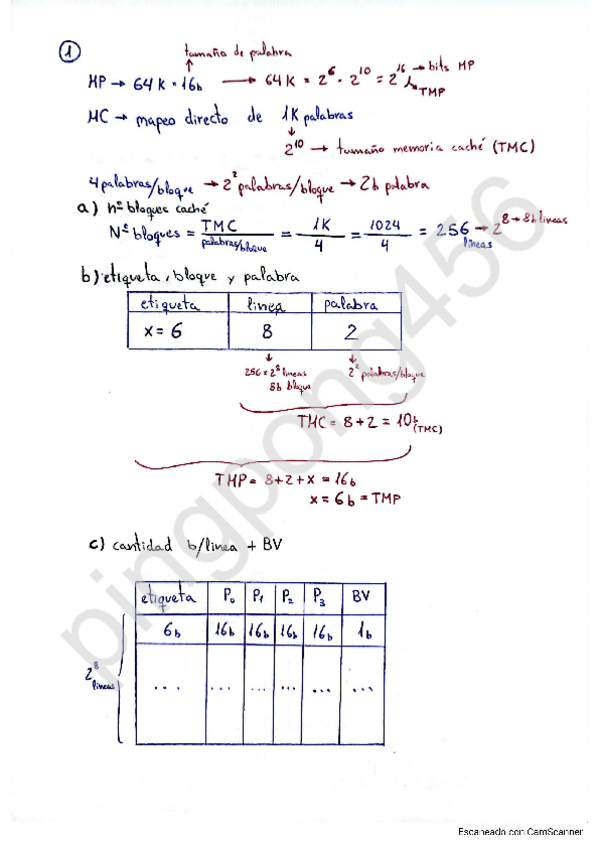 1
tamaño de palabra
MP → 64K * 16b → 64K = 2^6 · 2^10 = 2^16 → bits MP
TMP
MC → mapeo directo de 1K palabras
2^10 → tamaño memoria caché (TMC)
4 palabras/bloque → 2^2 palabras/bloque → 2b palabra
a) nº bloques caché
Nº bloques = TMC / palabras/bloque = 1K / 4 = 1024 / 4 = 256 líneas → 2^8 → 8b líneas
b) etiqueta, bloque y palabra
etiqueta linea palabra
x=6 8 2
256 = 2^8 lineas 2^2 palabras/bloque
8b bloque
TMC = 8+2 = 10b (TMC)
TMP = 8+2+x = 16b
x = 6b = TMP
c) cantidad b/linea + BV
etiqueta P0 P1 P2 P3 BV
6b 16b 16b 16b 16b 1b
2^8 lineas ... ... ... ... ... ...
pingpong456
Escaneado con CamScanner